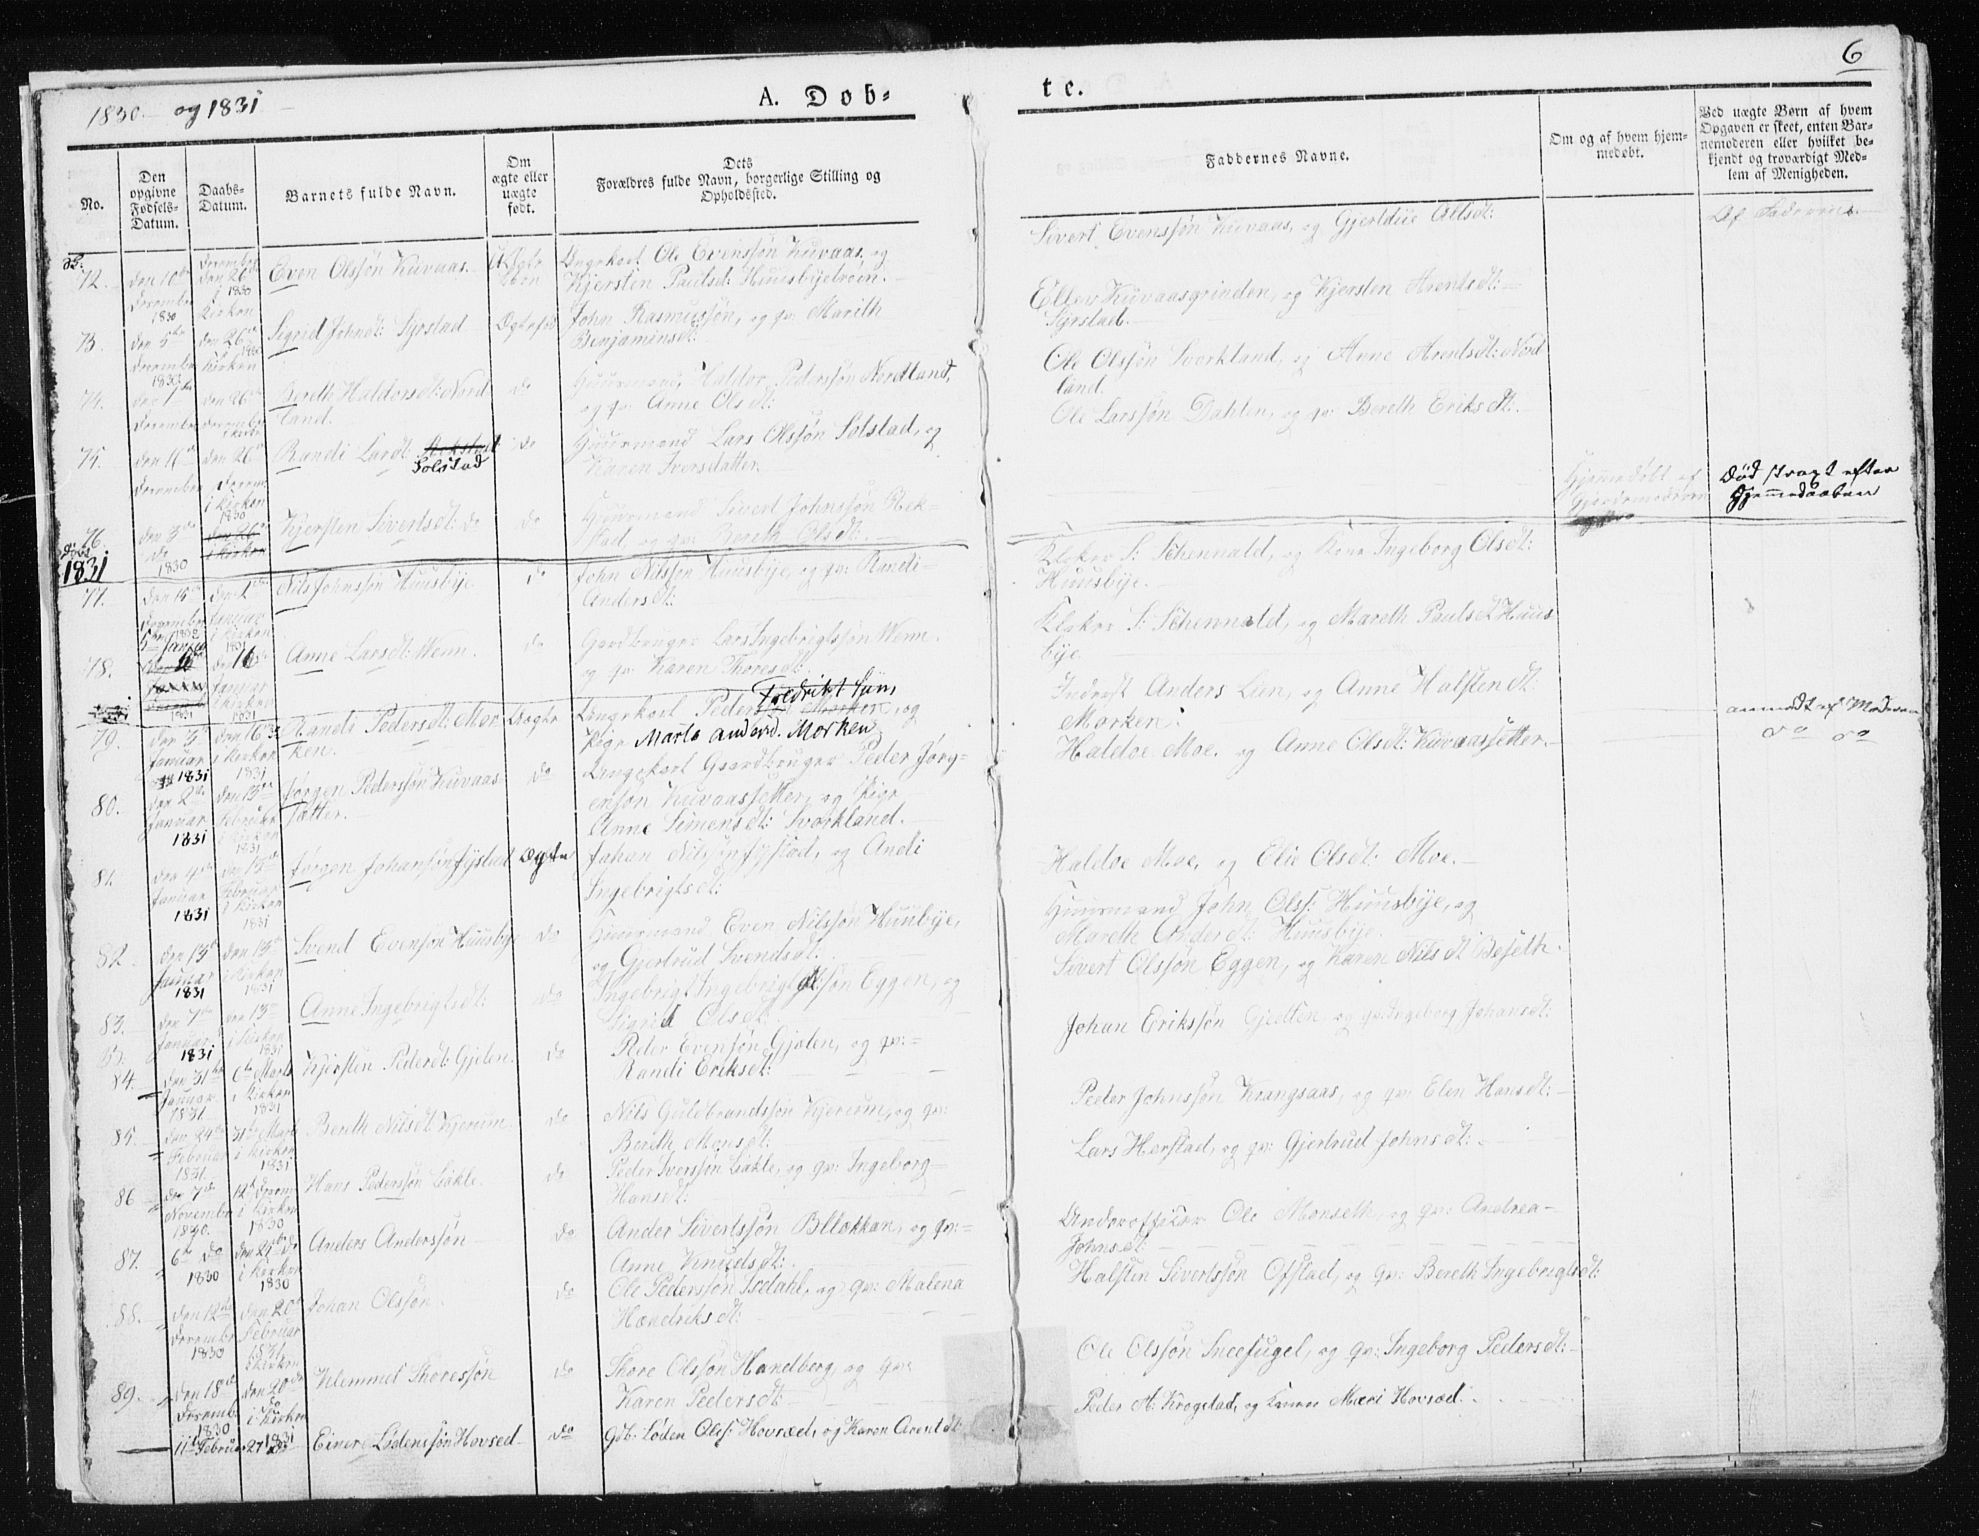 1830 og 1831
A. Døb-
te.
6
No.
Den opgivne Fødsels-Datum.
Daabs-Datum.
Barnets fulde Navn.
Om ægte eller uægte født.
Dets Forældres fulde Navn, borgerlige Stilling og Opholdssted.
Faddernes Navne.
Om og af hvem hjemmedøbt.
Ved uægte Børn af hvem Opgaven er skeet, enten Barnemoderen eller hvilket bekjendt og troværdigt Medlem af Menigheden.
72. den 10de December 1830 December den 26de 1830 i Kirken Even Olssøn Kuvaas Uægte Ungekarl Ole Evenssøn Kuvaas, og
Kjersten Paulsdt: Huusbyetrøen.
Sivert Evenssøn Kuvaas, og Gjertdue Olsdt:
Af Faderen
73. den 5te December 1830 den 26de Kirken Sigrid Johnsdt: Syrstad Ægtefød John Rasmussøn, og qv: Marith
Benjaminsdt:
Ellev Kuvaasgrinden, og Kjersten Arentsdt:
Syrstad.
74. den 7de December den 26de December i Kirken Bereth Haldorsdt: Nord
land.
do Huusmand, Haldor Pederssøn Nordland,
og qv: Anne Olsdt:
Ole Olssøn Svorkland, og Anne Arentsdt: Nord
land.
75. den 11te December den 26de Decem i Kirken 1830 Randi Larsdt:
Solstad
do Huusmand Lars Olssøn Solstad, og
Karen Iversdatter.
Ole Larssøn Dahlen, og qv: Bereth Eriksdt:
76. den 3de do 1830 den 26de i Kirken Kjersten Sivertsdt: do do Huusmand Sivert Johnssøn Rek-
stad og qv: Bereth Olsdt:
Hjemmedøbt af
Gjordemoderen
Død strax efter
Hjemmedaaben
døbt
1831
77. den 15de December 1830 den 1ste Januar i Kirken 1831 Nils Johnssøn Huusbye do John Nilssøn Huusbye, og qv: Randi
Andersdt:
Klokker S: Schevnald, og Kone Ingeborg Olsdt:
Huusbye.
78. 5te Januar 1831 den 16 Januar i Kirken 1831 Anne Larsdt: Wenn. do Gaardbruger Lars Ingebrigtssøn Wenn
og qv: Karen Thoresdt:
Klokker S: Schevnald, og Mareth Paulsdt Huus
bye
79. den 3de Januar 1831 den 16de i Kirken 1831 Randi Pedersdt: Mor
ken.
Uægte Ungekarl Peder Fredrikssøn, og
Pige Marta Andersd. Morken
Indrest Anders Lien, og Anne Halstendt:
Morken.
anmeldt af Moderen
80. den 2de Januar 1831 den 13de Februar i Kirken 1831 Jørgen Pederssøn Kuvaas
sætter.
do Ungekarl Gaardbruger Peder Jørg-
enssøn Kuvaassetter, og Pige
Anne Simensdt: Svorkland.
Haldoe Moe. og Anne Olsdt: Kuvaassetter.
do do
81. den 4de Januar 1831 den 13de Februar i Kirken 1831 Jørgen Johanssøn Jystad Ægte Johan Nilssøn Jystad, og Andi
Ingebrigtsdt:
Haldoe Moe, og Elie Olsdt: Moe.
82. den 15de Januar 1831 den 13de i Kirken 1831 Svend Evenssøn Huusbye do Huusmand Even Nilssøn Huusbye,
og Gjertrud Svendsdt.
Huusmand John Olss: Huusbye, og
Mareth Andersdt: Huusbye.
83. den 7de Januar 1831 den 13de i Kirken 1831 Anne Ingebrigtsdt: do Ingebrigt Ingebrigtssøn Eggen, og
Sigrid Olsdt.
Sivert Olssøn Eggen, og Karen Nilsdt Beseth.
84. den 31te Januar 1831 6te Marts i Kirken 1831 Kjersten Pedersdt: Gjølen. do Peder Evenssøn Gjølen, og qv:
Randi Eriksdt:
Johan Erikssøn Gjølten, og qv: Ingeborg Johansdt:
85. den 24de Februar 1831 31te Marts i Kirken 1831 Bereth Nilsdt: Kjerum do Nils Guldbrandssøn Kjerum, og qv:
Bereth Monsdt:
Peder Johnssøn Krangsaas, og qv: Elen Hansdt:
86 den 7de November 1830. 12te Decem i Kirken 1830 Hans Pederssøn Løkke. do Peder Iverssøn Løkle, og qv: Ingeborg
Hansdt:
Lars Harstad, og qv: Gjertrud Johnsdt:
87. 6te do 1830 den 26de do i Kirken 1830 Anders Anderssøn do Ander Sivertssøn Bllokkan, og qv:
Anne Knudsdt:
Underofficer Ole Monseth, og qv: Andrea
Johnsdt:
88. den 12te December 1830 den 20de Februar 1831 i Kirken Johan Olssøn. do Ole Pederssøn Isdahl, og qv: Malena
Hendriksdt:
Halsten Sivertssøn Ofstad, og qv: Bereth Ingebrigtsdt:
89. den 18de December 1830 den 20de do i Kirken 1831 Klemmet Thoressøn do Thore Olssøn Handberg, og qv:
Karen Pedersdt
Ole Olssøn Sneefugel, og qv: Ingeborg Pedersdt:
11 Februar 27 Einer Lødenssøn Hovsed do Gdb. Løden Olss: Hovsæd, og Karen Arentdt
Peder A. Krogstad, og Kone Mari Hovsæd.